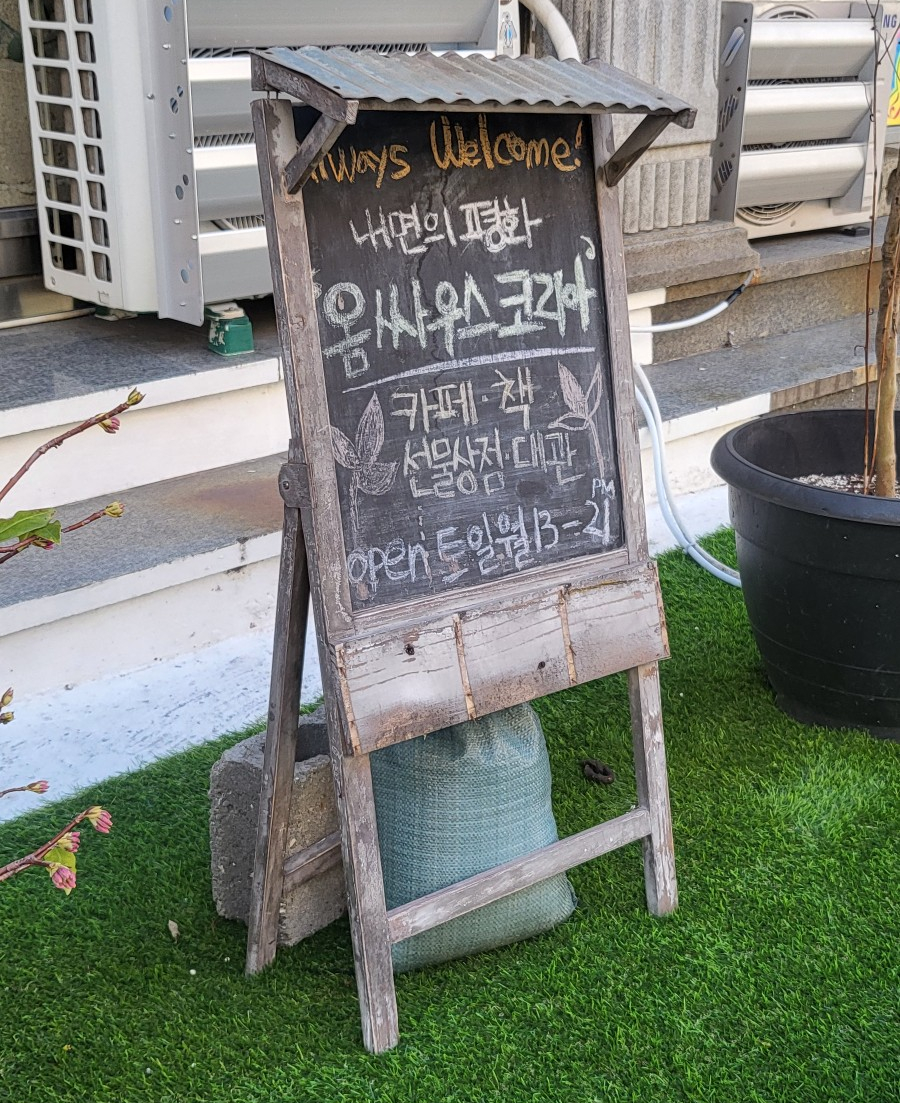 Always Welcome!
내면의 평화
'옴싸우스 코리아'
카페·책
선물상점·대관
PM
open: 토일월 13-21
NG